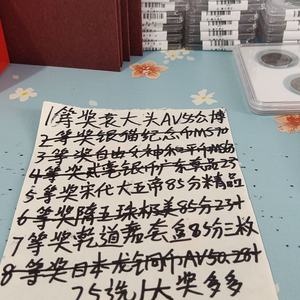 1等奖袁大头AV55公博
2等奖银猫纪念币MS70
3等奖自由女神和平币MS63
4等奖贰毫银币广东真品25
5等奖宋代大五帝85分精品
6等奖降五珠极美85分23十
7等奖乾道嘉套盒85分三枚
8等奖日本龙铜币AV50.28十
25选1大奖多多